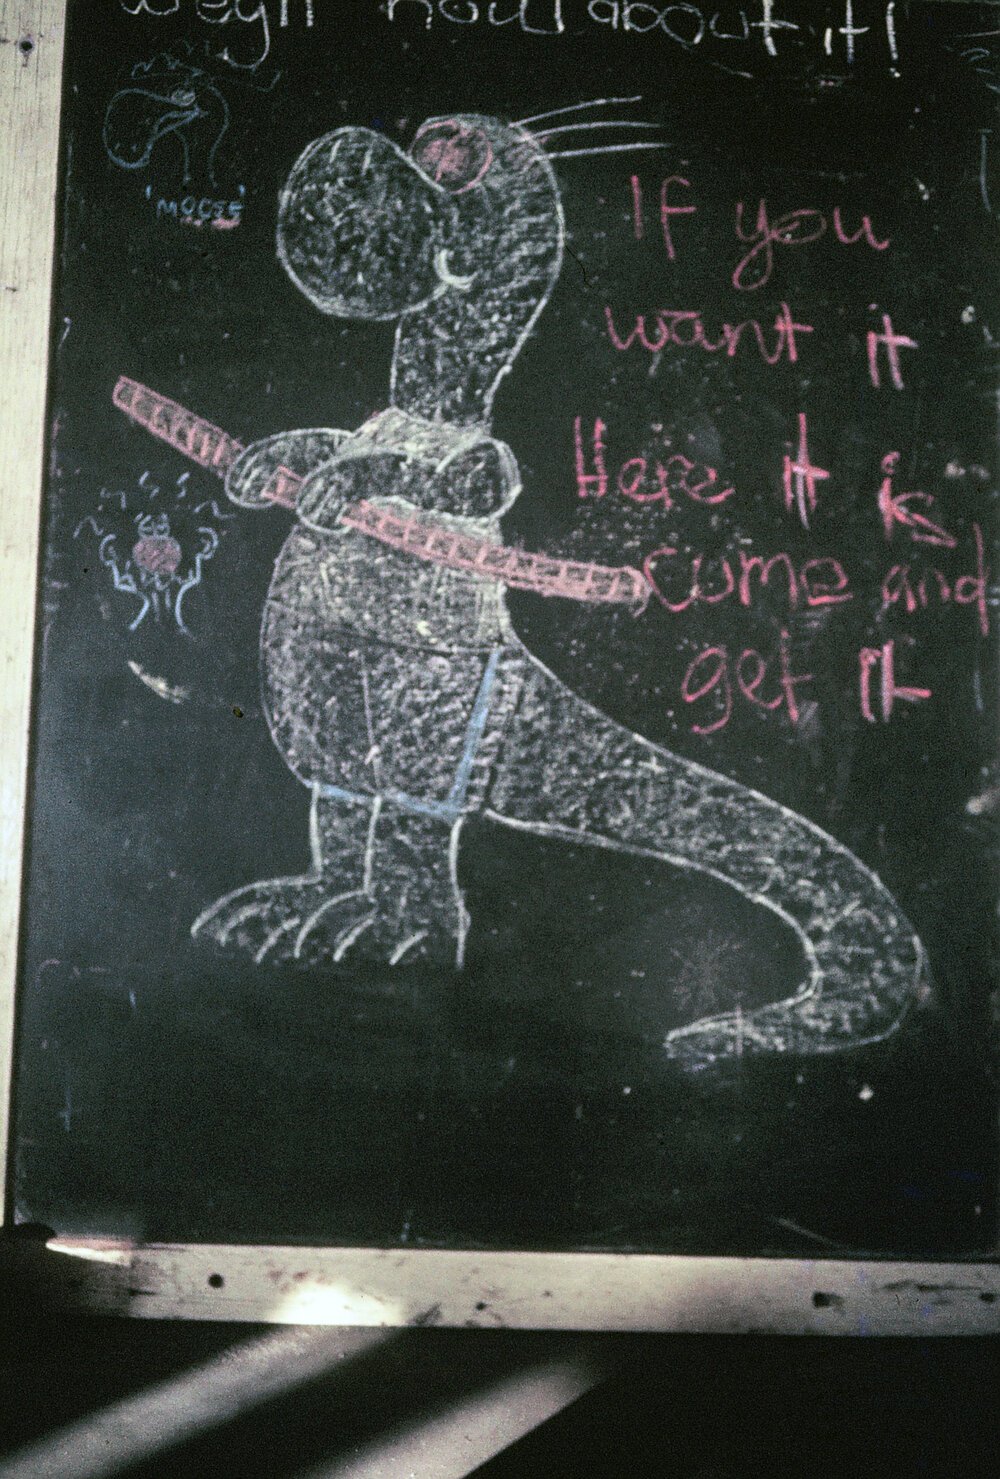 how about it!
'MOOSE
If you
want it
Here it is
come and
get it